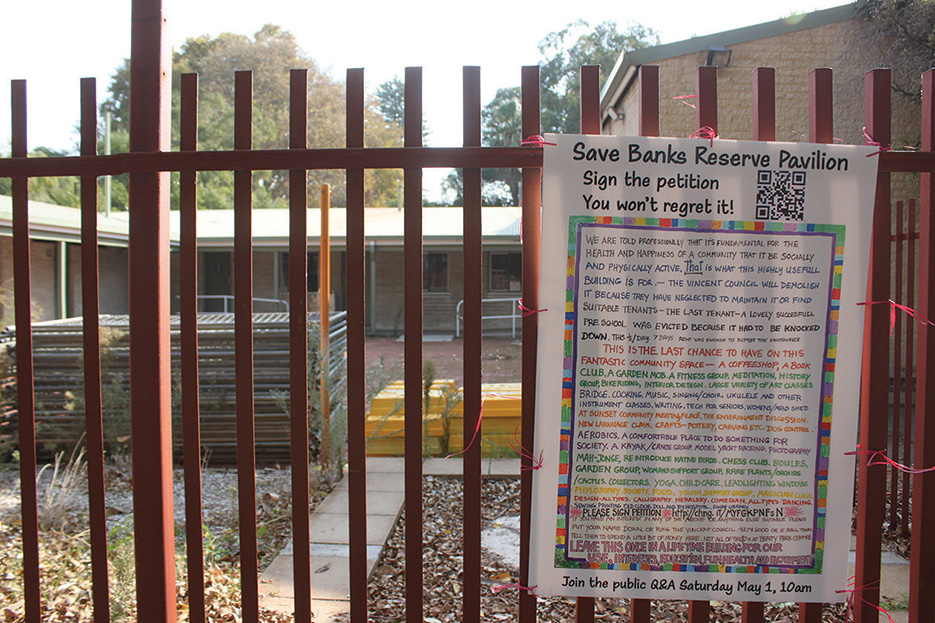 Save Banks Reserve Pavilion
Sign the petition
You won't regret it!
WE ARE TOLD PROFESSIONALLY THAT IT'S FUNDAMENTAL FOR THE
HEALTH AND HAPPINESS OF A COMMUNITY THAT IT BE SOCIALLY
AND PHYSICALLY ACTIVE, That IS WHAT THIS HIGHLY USEFULL
BUILDING IS FOR. — THE VINCENT COUNCIL WILL DEMOLISH
IT BECAUSE THEY HAVE NEGLECTED TO MAINTAIN IT OR FIND
SUITABLE TENANTS — THE LAST TENANT — A LOVELY SUCCESSFULL
PRE SCHOOL WAS EVICTED BECAUSE IT HAD TO BE KNOCKED
DOWN. THIS 7 DAYS RENT WAS ENOUGH TO SUPPORT THE
THIS IS THE LAST CHANCE TO HAVE ON THIS
FANTASTIC COMMUNITY SPACE — A COFFEESHOP, A BOOK
CLUB, A GARDEN MOB, A FITNESS GROUP, MEDITATION, HISTORY
GROUP, BIKERIDING, INTERIOR DESIGN. LARGE VARIETY OF ART CLASSES
BRIDGE. COOKING, MUSIC, SINGING/CHOIR, UKULELE AND OTHER
INSTRUMENT CLASSES, WRITING, TECH FOR SENIORS, WOMENS/MENS SHED
AT SUNSET COMMUNITY MEETING PLACE, THE ENVIRONMENT DISCUSSION.
NEW LANGUAGE CLASS, CRAFTS — POTTERY, CARVING ETC. DOG CONTROL.
AEROBICS, A COMFORTABLE PLACE TO DO SOMETHING FOR
SOCIETY. A KAYAK/CANOE GROUP, MODEL YACHT RACING, PHOTOGRAPHY
MAH-JONGE, RE INTRODUCE NATIVE BIRDS. CHESS CLUB, BOULES,
GARDEN GROUP, WOMANS SUPPORT GROUP, RARE PLANTS/ORCHIDS
/CACTUS, COLLECTORS, YOGA, CHILD CARE, LEADLIGHTING WINDOWS
PHYLOSOPHY SOCIETY, FOOD, YOUTH SUPPORT GROUP, MAGICIAN CLASS,
DESIGN-ALLTYPES, CALIGRAPHY, HERALDRY, COMEDIAN, ALLTYPES DANCING,
SEWING, PRINTING, OLD
PLEASE SIGN PETITION http://chng.it/MYFGKPNFsN
IF YOU HAVE AN INTEREST IN ANY OF THE ABOVE OR ANYTHING ELSE SUITABLE PLEASE
PUT YOUR NAME DOWN, OR RING THE VINCENT COUNCIL OR E MAIL THEM
TELL THEM TO SPEND A LITTLE BIT OF MONEY HERE, NOT ALL OF THE
LEAVE THIS ONCE IN A LIFE TIME BUILDING FOR OUR
USE, INTERESTS, EDUCATION, FUN, HEALTH AND
Join the public Q&A Saturday May 1, 10am